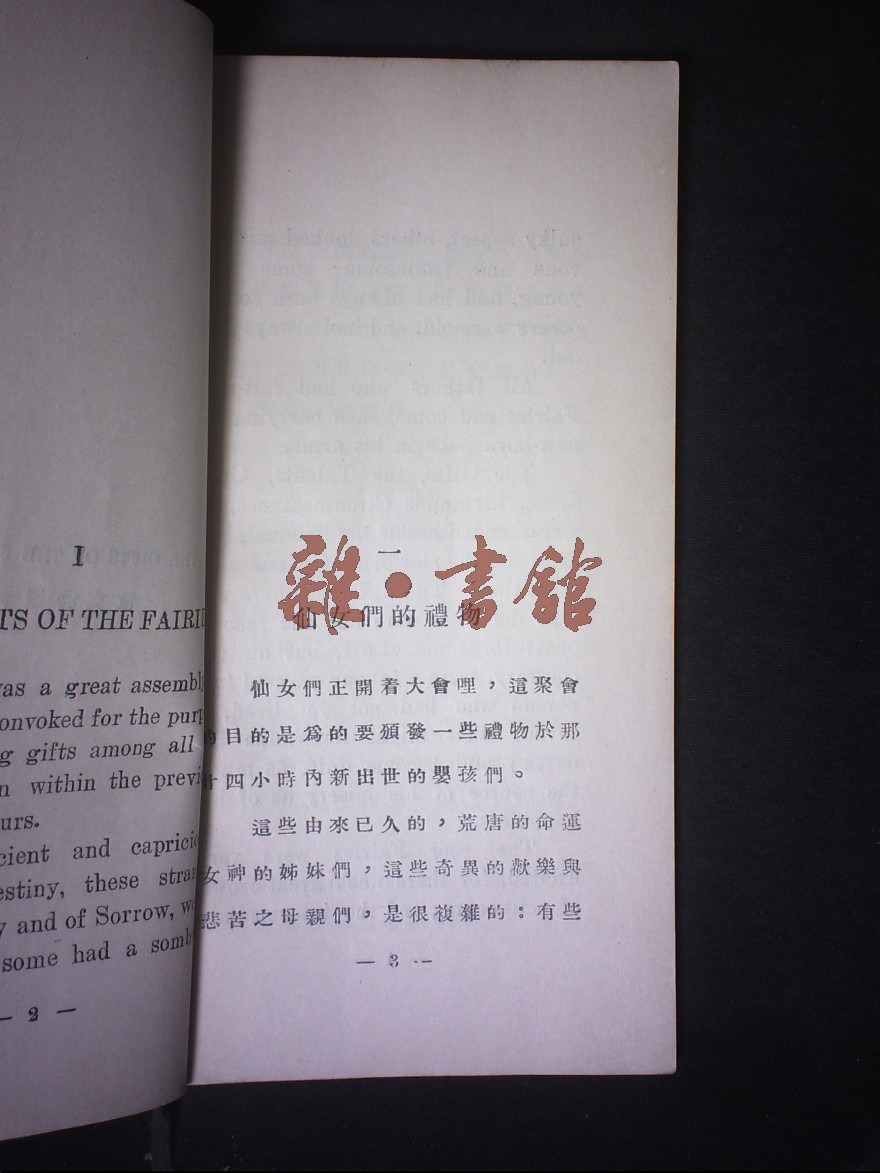 I
TS OF THE FAIRIE
was a great assembly
onvoked for the purp
g gifts among all
n within the previ
urs.
cient and capricio
estiny, these stran
y and of Sorrow, we
some had a somb
— 2 —
一
仙女們的禮物
仙女們正開着大會哩，這聚會
的目的是爲的要頒發一些禮物於那
廿四小時內新出世的嬰孩們。
這些由來已久的，荒唐的命運
女神的姊妹們，這些奇異的歡樂與
悲苦之母親們，是很複雜的：有些
— 3 —
雜·書館